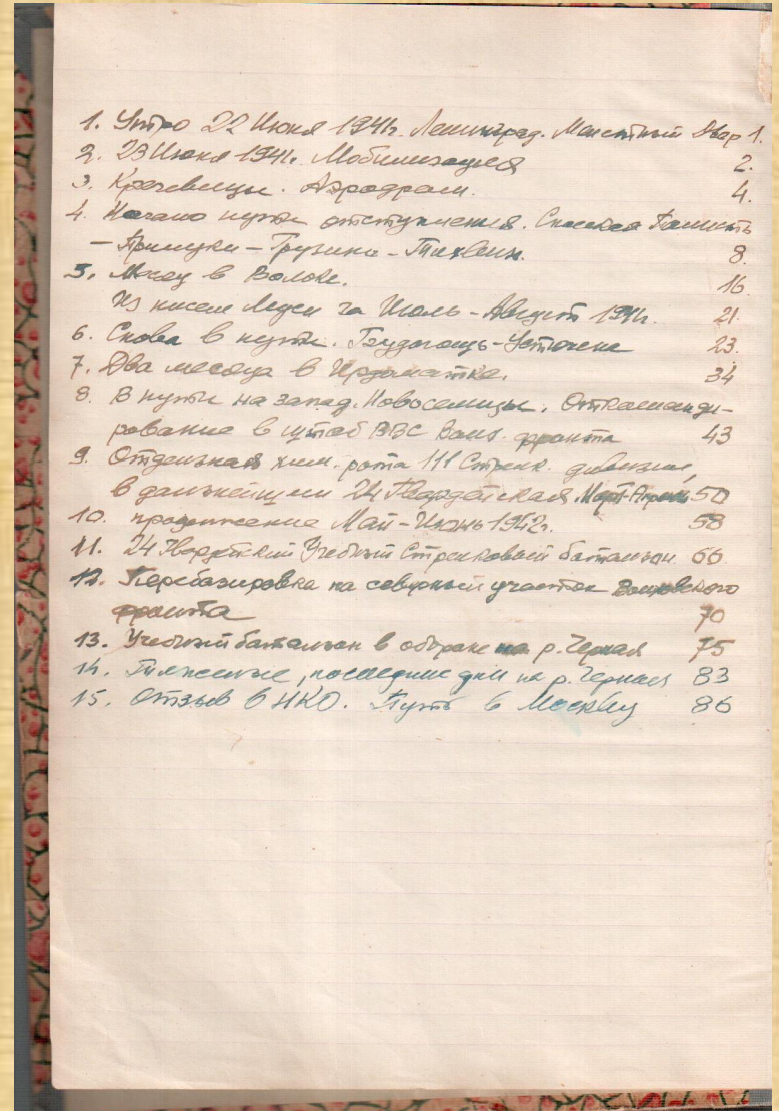 1. Утро 22 Июня 1941г. Ленинград. Манежный Двор 1.
2. 23 Июня 1941г. Мобилизация 2.
3. Кречевицы. Аэродром. 4.
4. Начало пути отступления. Спасская Полисть
– Прилуки – Грузино – Тихвин. 8.
5. Месяц в Волоке. 16
Из писем Люси за Июль – Август 1941г. 21.
6. Снова в пути. Будогощь – Устюжна 23.
7. Два месяца в 34
8. В пути на запад. Новоселицы. Откоманди-
рование в штаб ВВС Волх. фронта 43
9. Отдельная хим. рота 111 Стрелк. дивизии,
в дальнейшем 24 Гвардейская. Март-Апрель 50
10. продолжение Май – Июнь 1942г. 58
11. 24 Гвардейский Учебный Стрелковый батальон 66
12. Перебазировка на северный участок Волховского
фронта 70
13. Учебный батальон в обороне на р. Черная 75
14. Тяжелые, последние дни на р. Черная 83
15. Отзыв в НКО. Путь в Москву 86